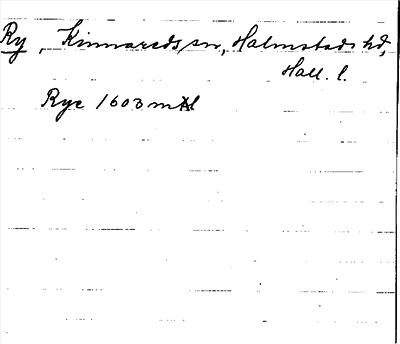 Ry, Kinnareds sn, Halmstads hd,
Hall. l.
Rye 1603 mtl